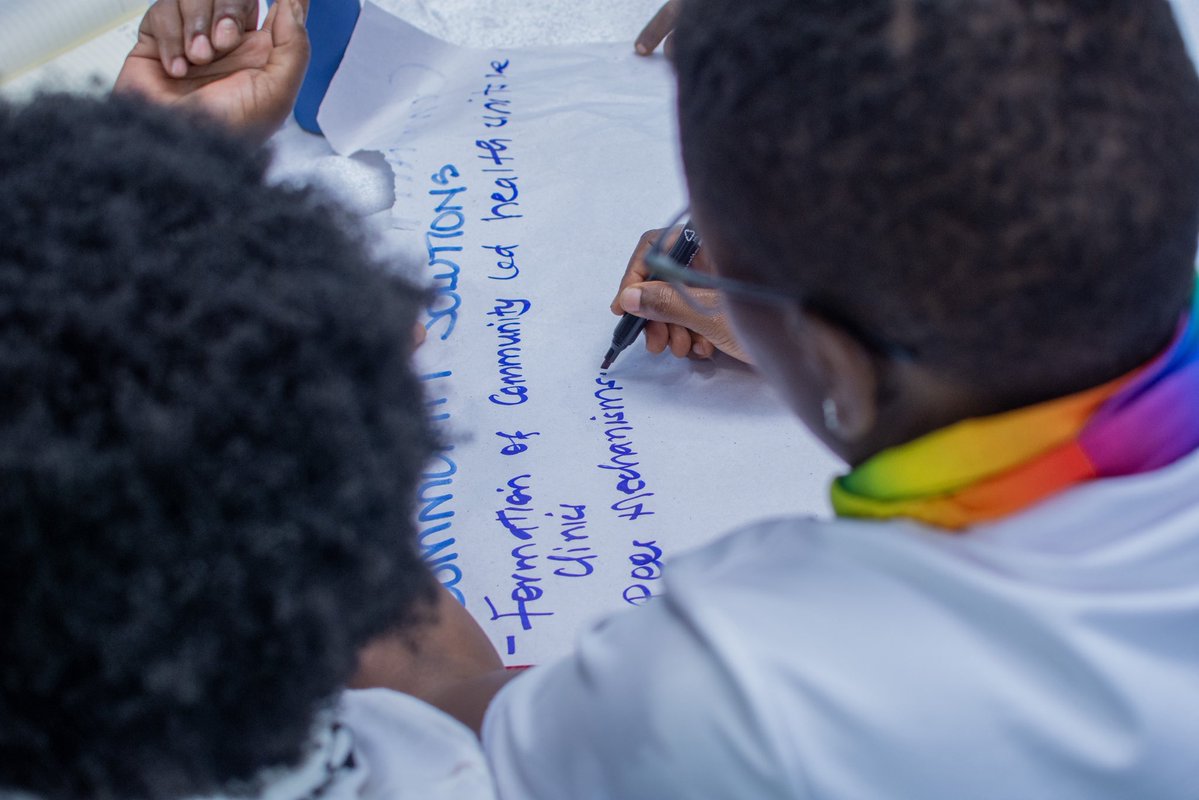 COMMUNITY SOLUTIONS
- Formation of Community Led health units ie
Clinics
Peer Mechanisms